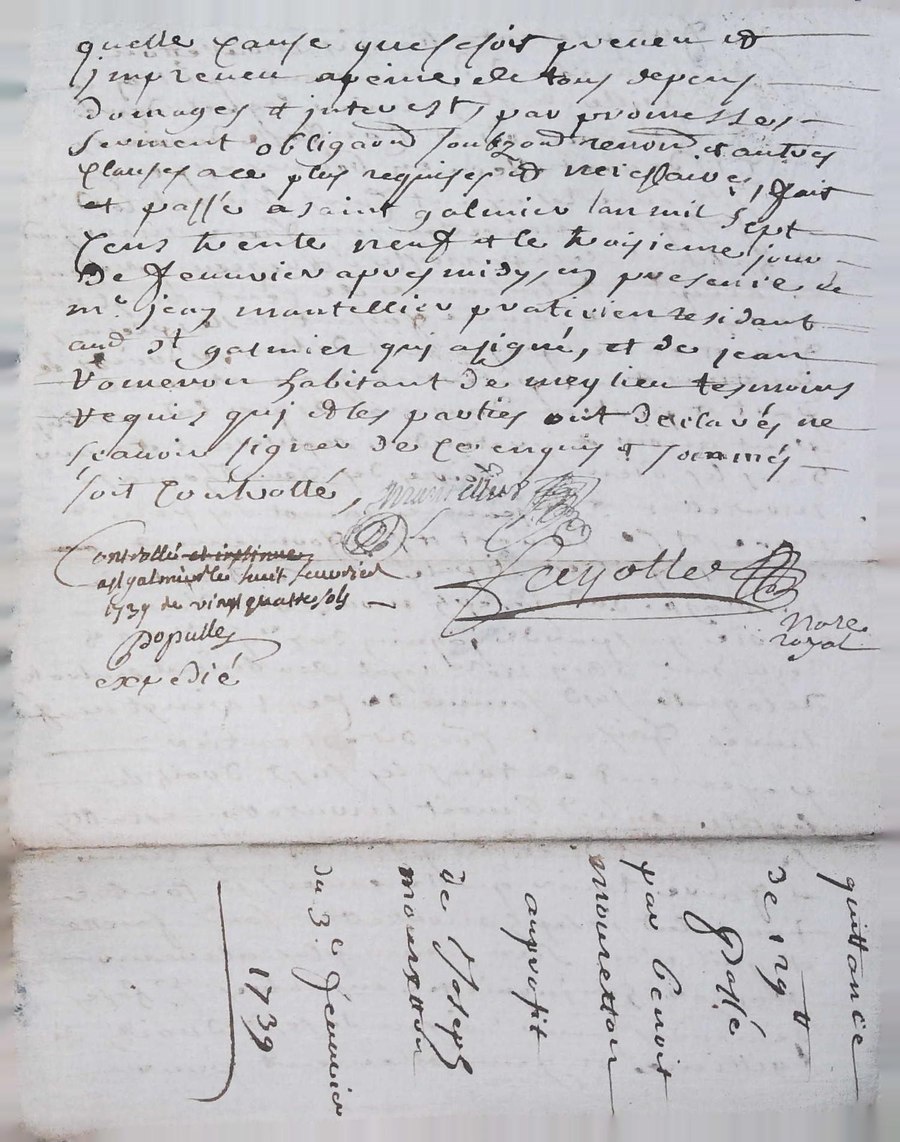 quelle cause que se soit preveu et
impreveu a peine de tous depens
domages et interests par promesses
serment obligaõns soubzõn renonõn et autres
clauses a ce plus requises et necessaires, fait
et passé a saint galmier lan mil sept
cens trente neuf et le troisieme jour
de feuvrier apres midy, en presence de
mr. jean mantellier praticien residant
aud. st galmier qui a signé, et de jean
habitant de meylieu tesmoins
requis qui et les parties ont declarés ne
scavoir signer de ce enquis et sommés
soit controllé, Mantellier
Controllé et insinué
a st galmier le huit feuvrier
1739 Rx vingt quatre sols
expedié
Fayolle
nore
royal
quittance
de 129 tt
Passé
par benoit
mouretton
au profit
de Joseph
mouretton
du 3e feuvrier
1739